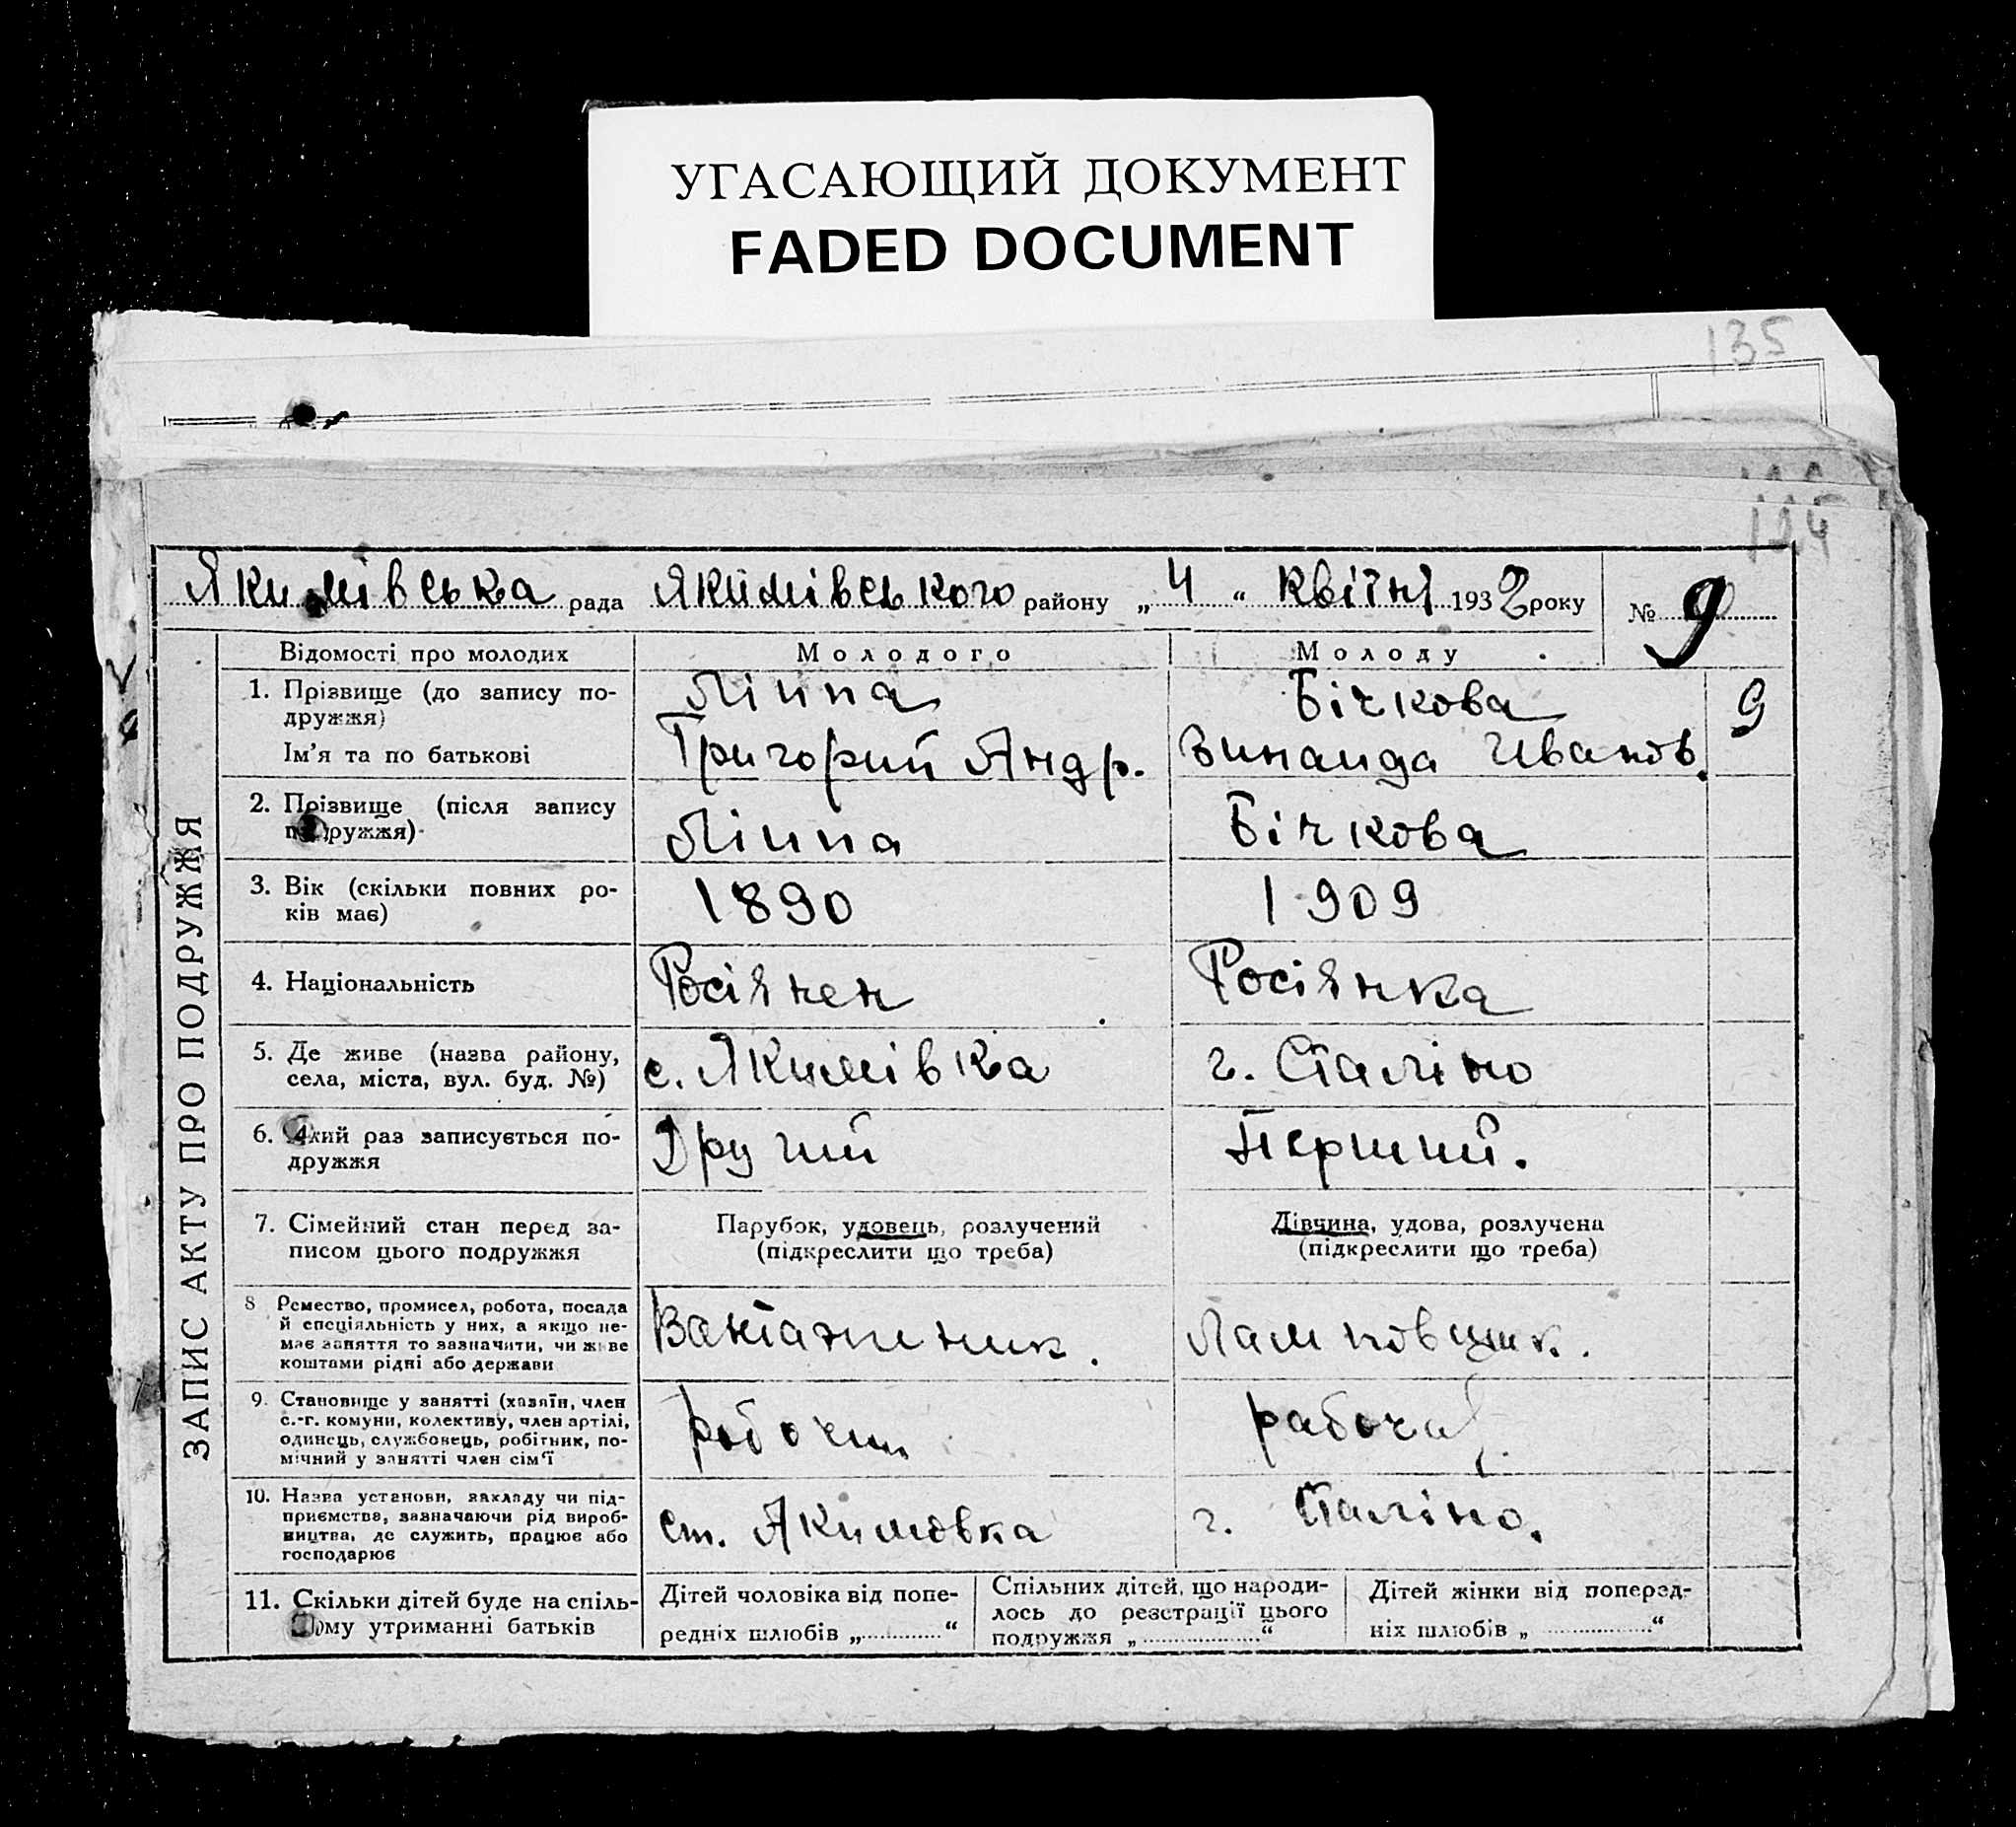 УГАСАЮЩИЙ ДОКУМЕНТ
FADED DOCUMENT
135
124
Якимівська рада Якимівського району „ 4 “ Квітня 1932 року № 9
ЗАПИС АКТУ ПРО ПОДРУЖЖЯ
Відомості про молодих
Молодого
Молоду
1. Прізвище (до запису по-
дружжя)
Ім’я та по батькові
Ліппа
Григорий Андр.
Бічкова
Зинаида Иванов.
9
2. Прізвище (після запису
подружжя)
Ліппа
Бічкова
3. Вік (скільки повних ро-
ків має)
1890
1909
4. Національність
Росіянен
Росіянка
5. Де живе (назва району,
села, міста, вул. буд. №)
с. Якимівка
г. Сталіно
6. Який раз записується по-
дружжя
Другий
Перший.
7. Сімейний стан перед за-
писом цього подружжя
Парубок, удовець, розлучений
(підкреслити що треба)
Дівчина, удова, розлучена
(підкреслити що треба)
8 Ремество, промисел, робота, посада
й спеціяльність у них, а якщо не-
має заняття то зазначити, чи живе
коштами рідні або держави
Вантажник.
Ламповщик.
9. Становище у занятті (хазяїн, член
с.-г. комуни, колективу, член артілі,
одинець, службовець, робітник, по-
мічний у занятті член сім’ї
рабочий
рабочая
10. Назва установи, закладу чи під-
приємства, зазначаючи рід вироб-
ництва, де служить, працює або
господарює
ст. Акимовка
г. Сталіно.
11. Скільки дітей буде на спіль-
ному утриманні батьків
Дітей чоловіка від попе-
редніх шлюбів „ “
Спільних дітей, що народи-
лось до реєстрації цього
подружжя „ “
Дітей жінки від поперед-
ніх шлюбів „ “